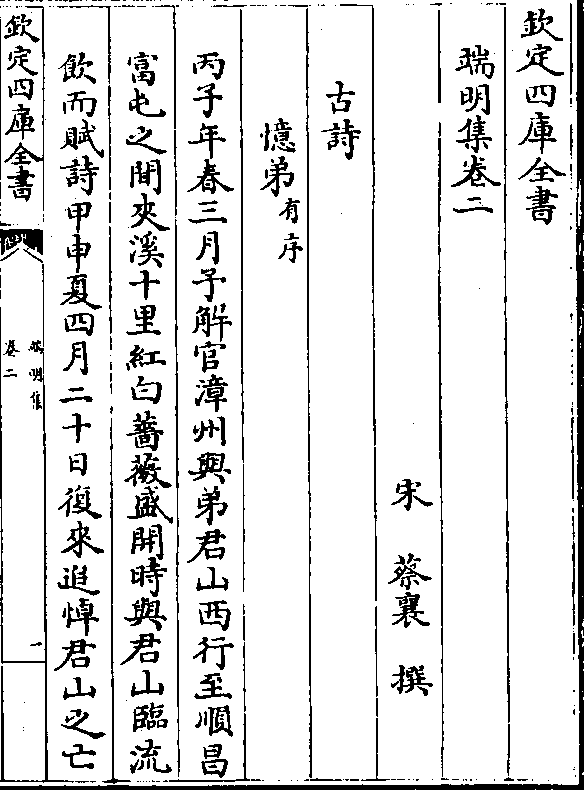 欽定四庫全書
端明集卷二
宋　蔡襄　撰
古詩
憶弟有序
丙子年春三月予解官漳州與弟君山西行至順昌
富屯之間夾溪十里紅白薔薇盛開時與君山臨流
飲而賦詩甲申夏四月二十日復來追悼君山之亡
欽定四庫全書
端明集
卷二
一